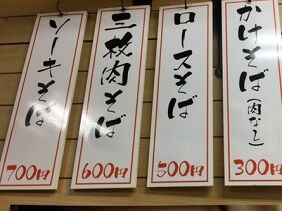 かけそば(肉なし)
300円
ロースそば
500円
三枚肉そば
600円
ソーキそば
700円